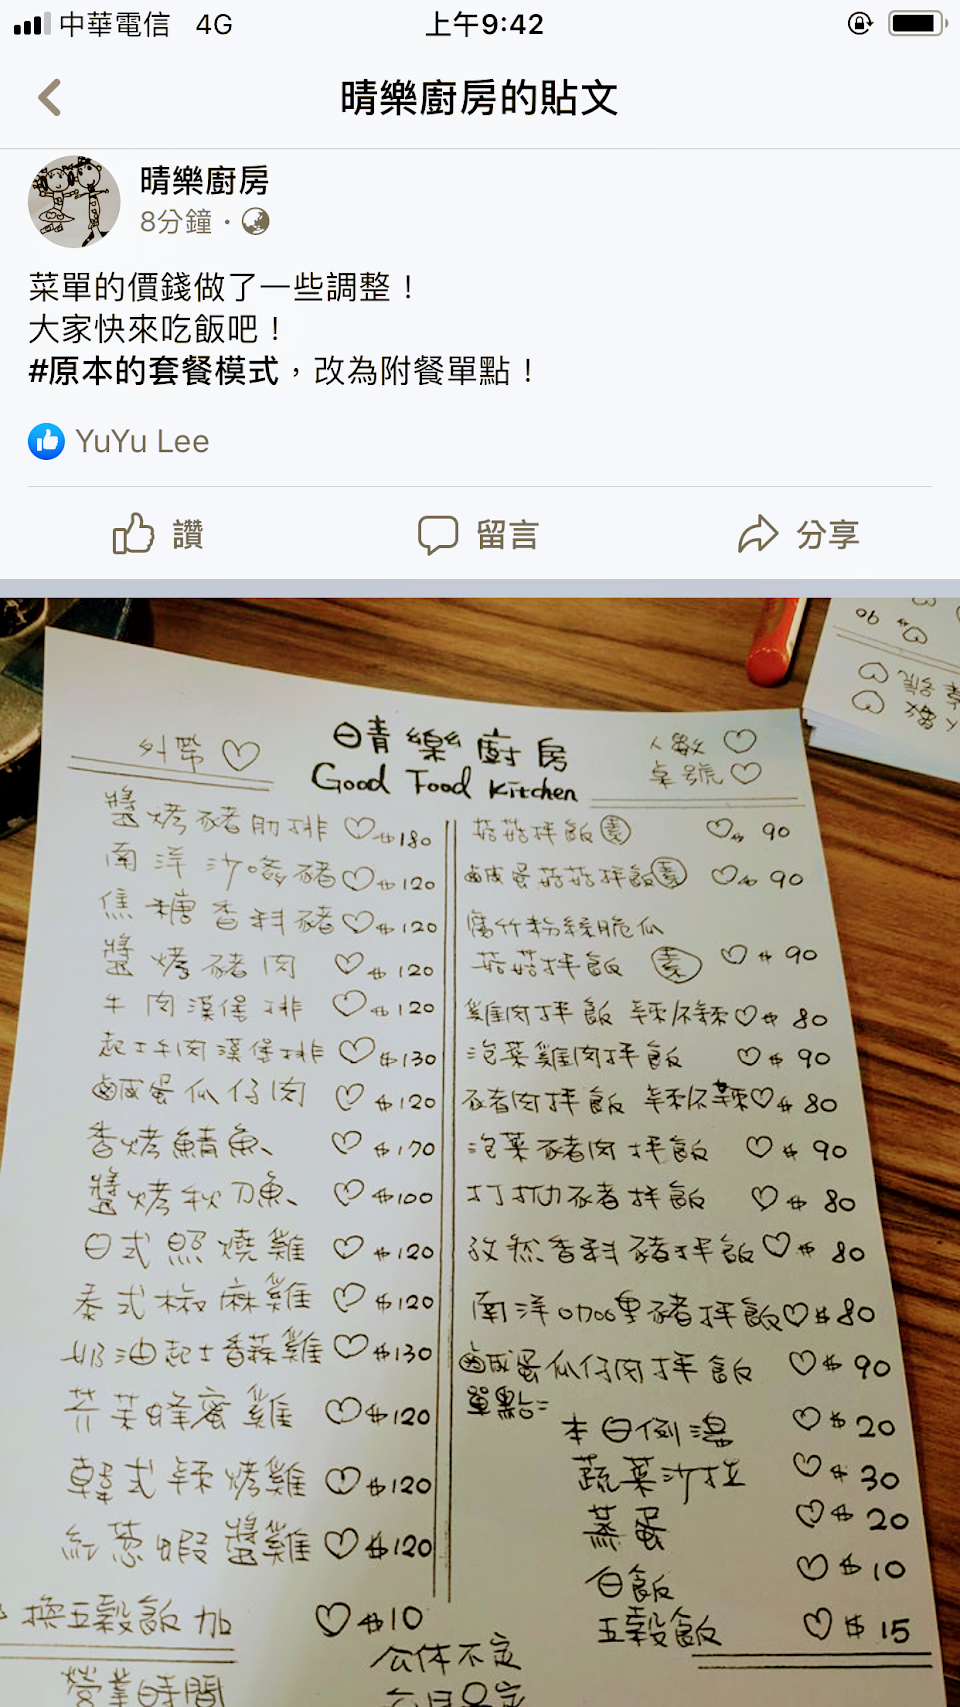 中華電信 4G 上午9:42
晴樂廚房的貼文
晴樂廚房
8分鐘・
菜單的價錢做了一些調整！
大家快來吃飯吧！
#原本的套餐模式，改為附餐單點！
YuYu Lee
讚 留言 分享
外帶
晴樂廚房
Good Food Kitchen
人數
桌號
醬烤豬肋排 $180
南洋沙嗲豬 $120
焦糖香料豬 $120
醬烤豬肉 $120
牛肉漢堡排 $120
起士牛肉漢堡排 $130
鹹蛋瓜仔肉 $120
香烤鯖魚 $170
醬烤秋刀魚 $100
日式照燒雞 $120
泰式椒麻雞 $120
奶油起士香蒜雞 $130
芥茉蜂蜜雞 $120
韓式辣烤雞 $120
紅蔥蝦醬雞 $120
換五穀飯加 $10
營業時間
公休不定
菇菇拌飯 素 $90
鹹蛋菇菇拌飯 素 $90
腐竹粉絲脆瓜
菇菇拌飯 素 $90
雞肉拌飯 辣/不辣 $80
泡菜雞肉拌飯 $90
豬肉拌飯 辣/不辣 $80
泡菜豬肉拌飯 $90
打拋豬拌飯 $80
孜然香料豬拌飯 $80
南洋咖哩豬拌飯 $80
鹹蛋瓜仔肉拌飯 $90
單點=
本日例湯 $20
蔬菜沙拉 $30
蒸蛋 $20
白飯 $10
五穀飯 $15
人數
桌號
90